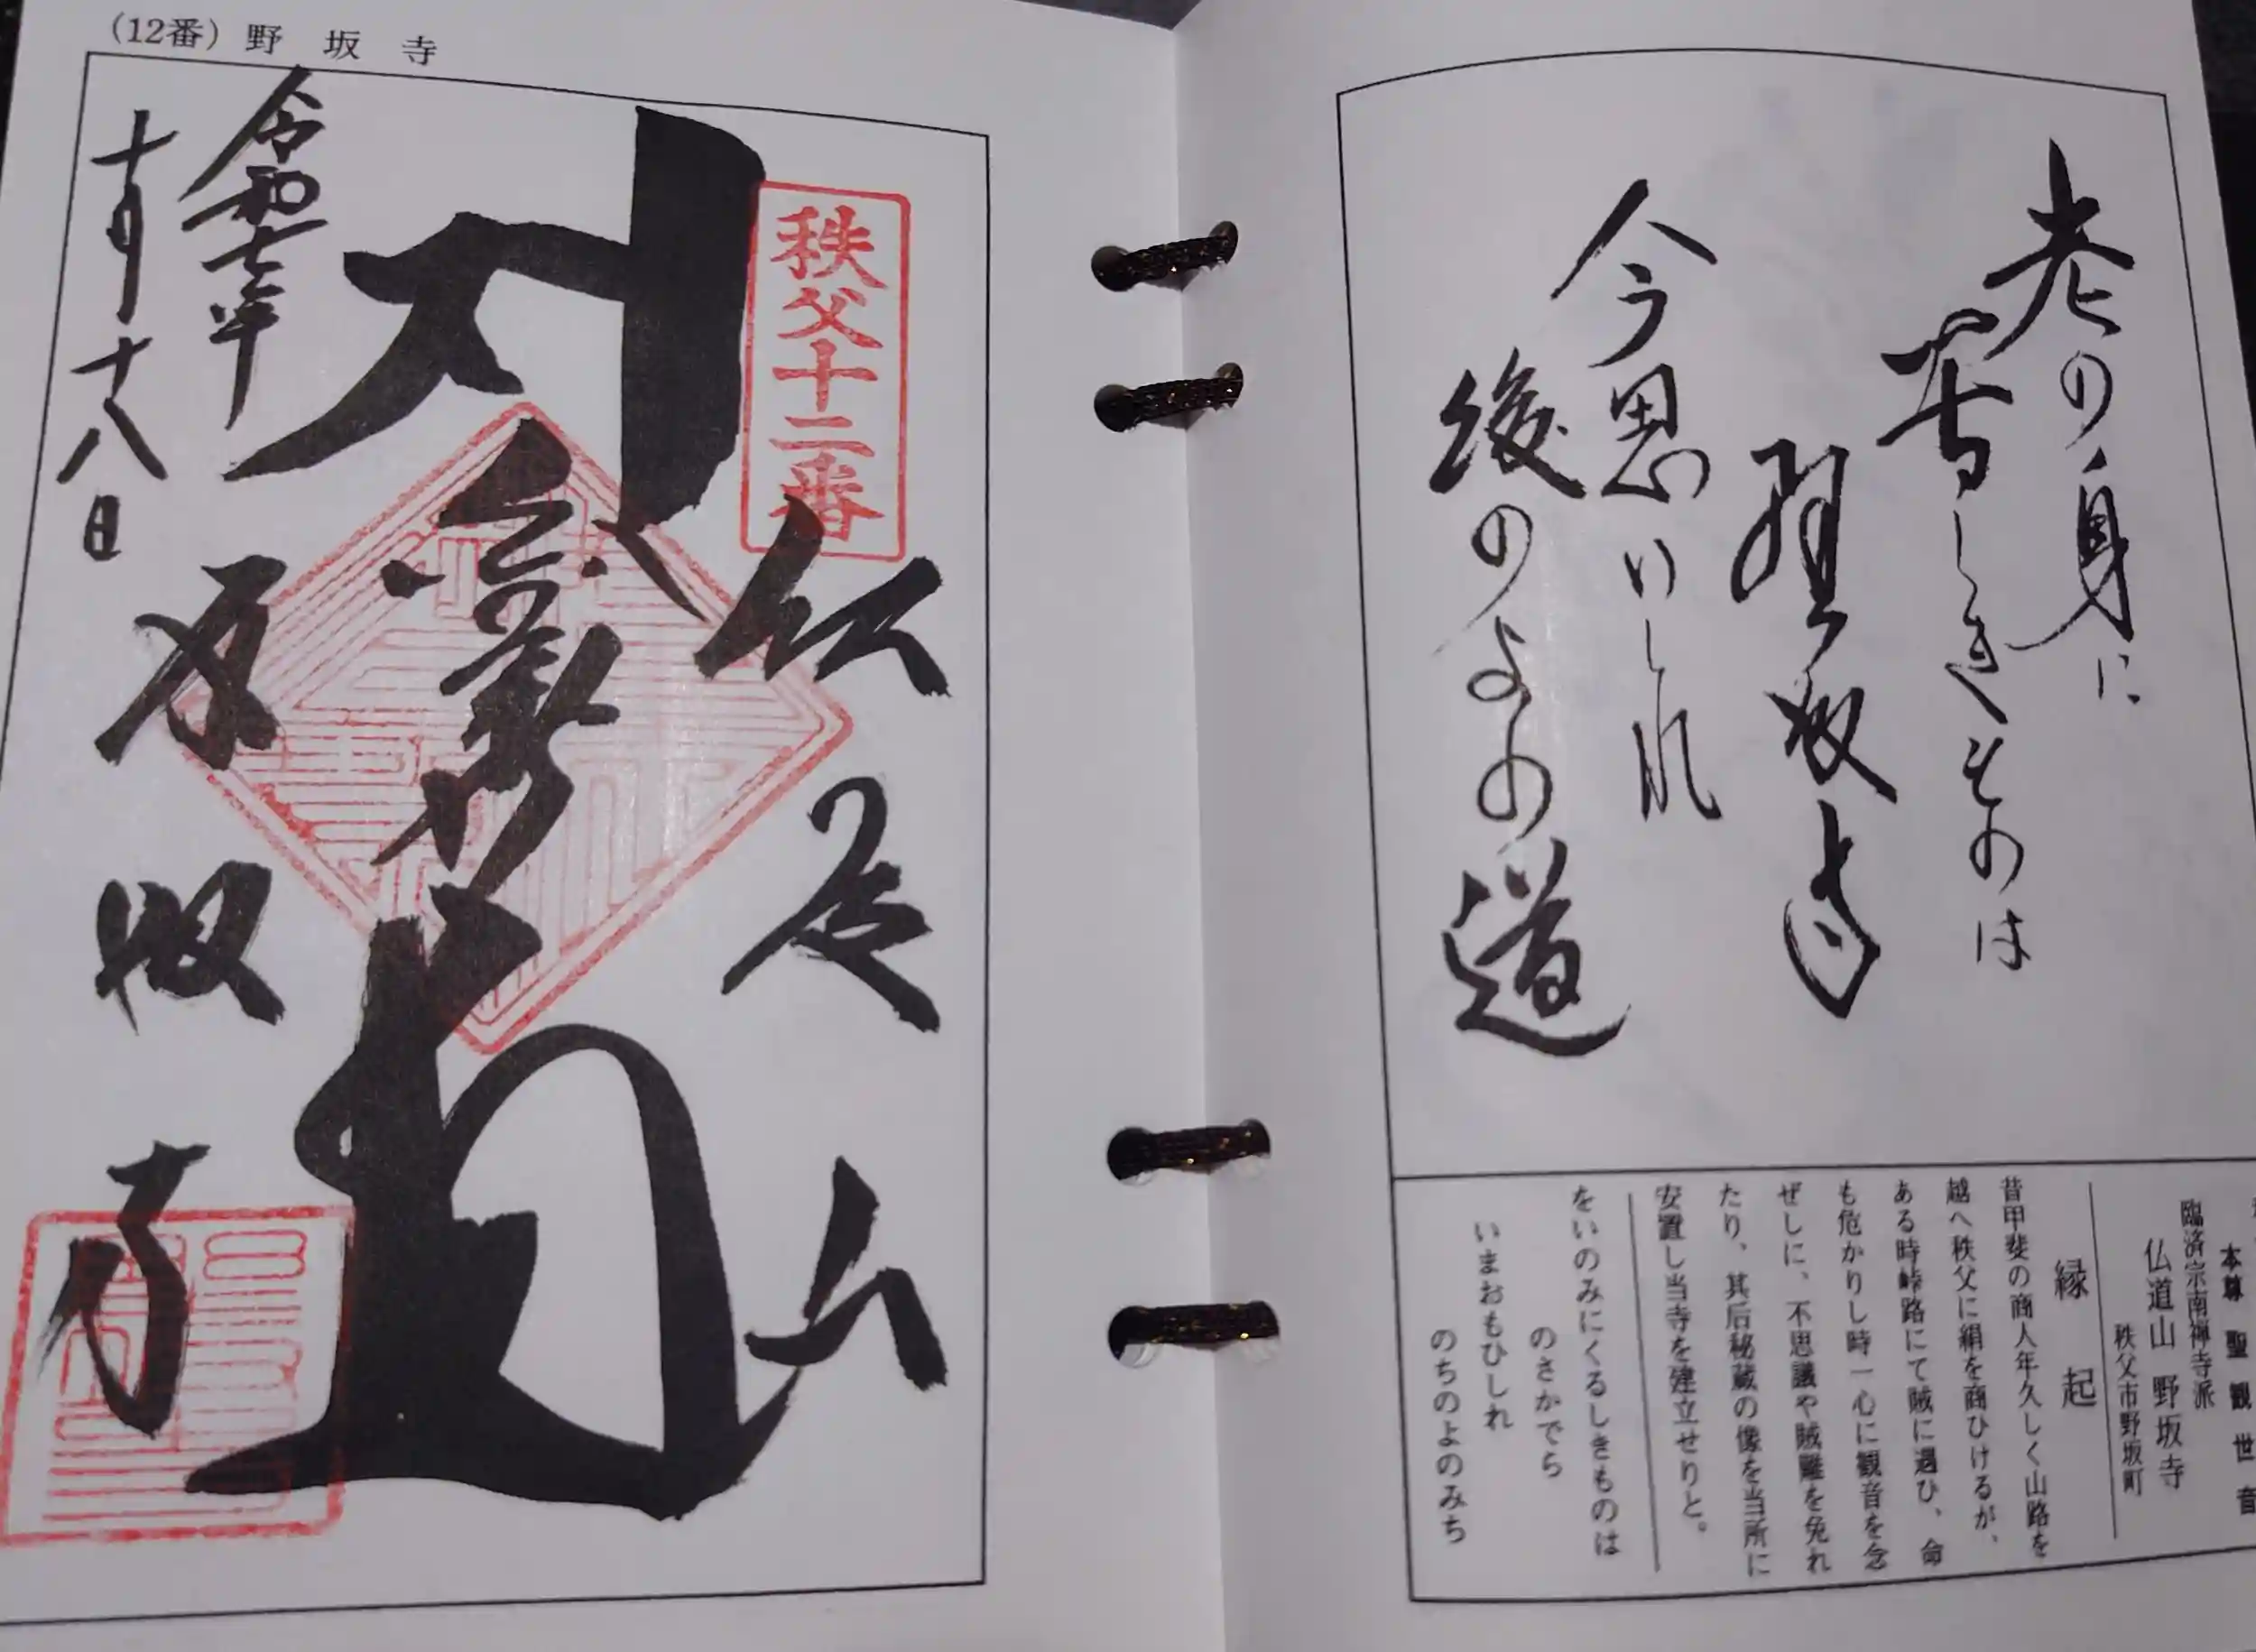 (12番) 野坂寺
秩父十二番
仏道山
野坂寺
令和七年
十月十八日
老の身に
苦しきものは
野坂寺
今思いしれ
後のよの道
本尊 聖観世音
臨済宗南禅寺派
仏道山 野坂寺
秩父市野坂町
縁起
昔甲斐の商人年久しく山路を
越へ秩父に絹を商ひけるが、
ある時峠路にて賊に遇ひ、命
も危かりし時一心に観音を念
ぜしに、不思議や賊難を免れ
たり、其后秘蔵の像を当所に
安置し当寺を建立せりと。
をいのみにくるしきものは
のさかでら
いまおもひしれ
のちのよのみち